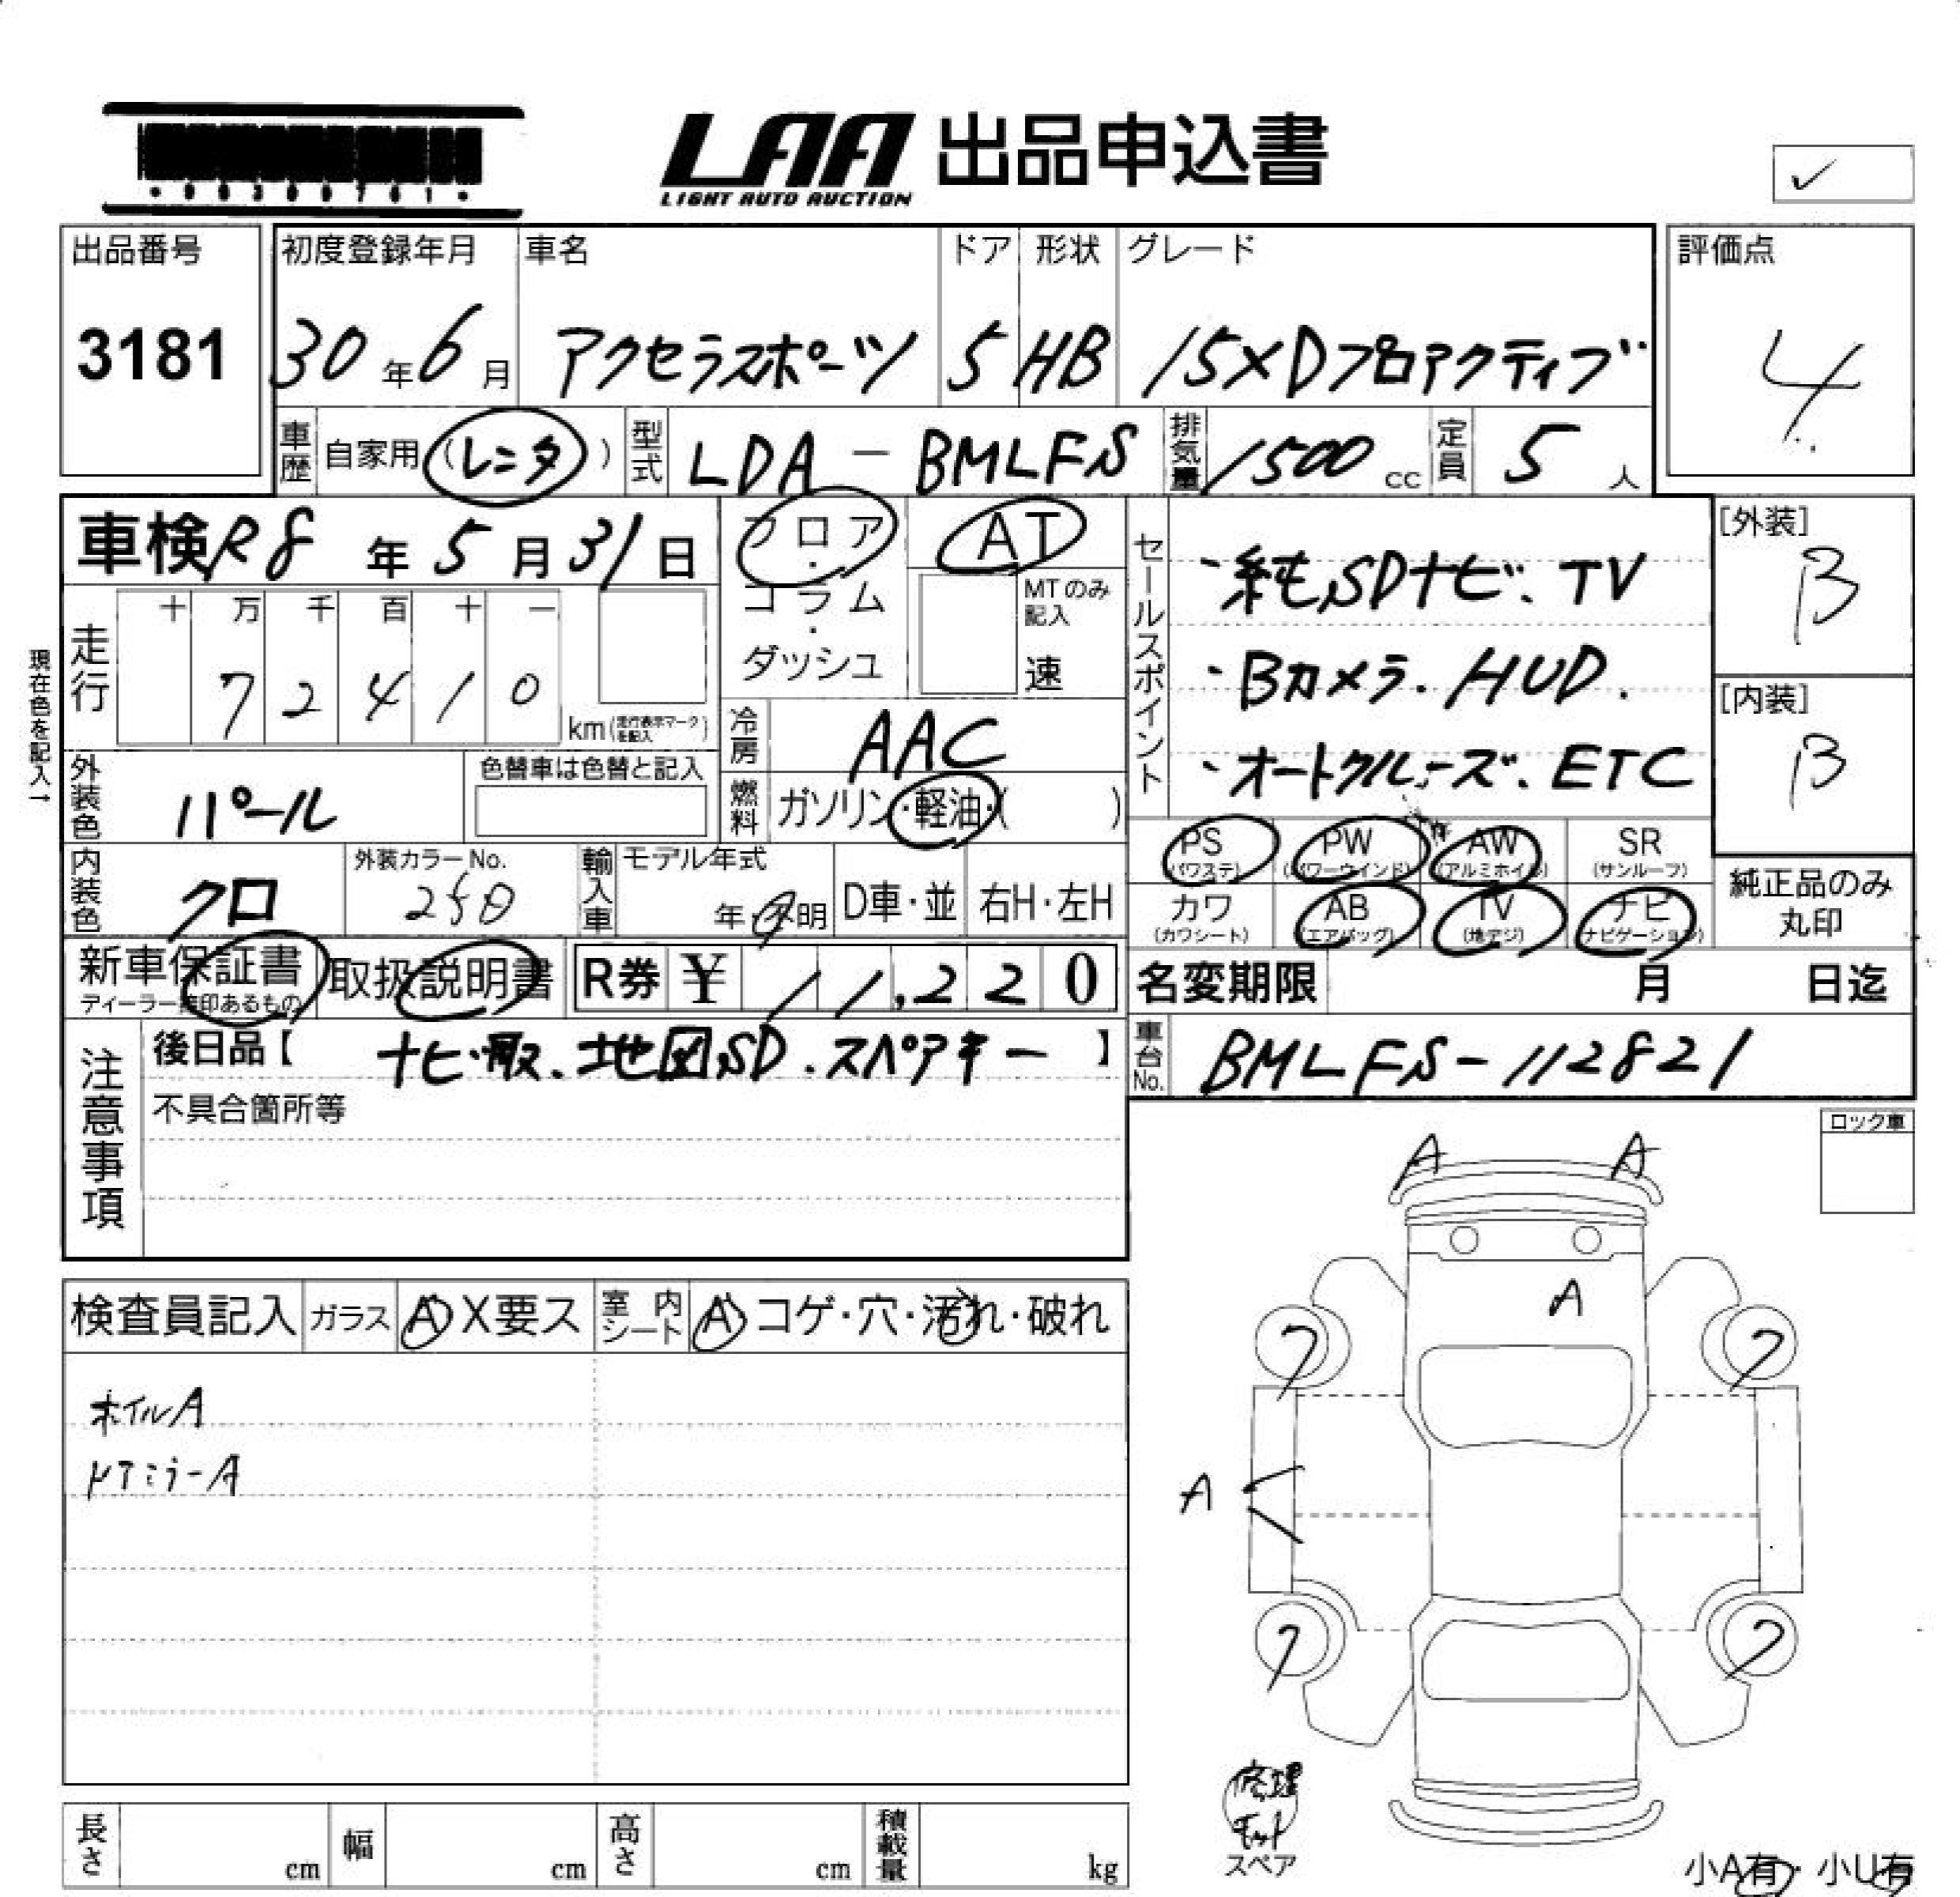 LAA 出品申込書
LIGHT AUTO AUCTION
出品番号 初度登録年月 車名 ドア 形状 グレード 評価点
3181 30年6月 アクセラスポーツ 5 HB 15XDプロアクティブ 4
車歴 自家用(レンタ) 型式 LDA-BMLFS 排気量 1500cc 定員 5人
車検 R8年5月31日 フロア・コラム・ダッシュ AT MTのみ記入 速
現在色を記入→
走行 十 万 千 百 十 一
7 2 4 1 0 km(走行表示マークを記入)
冷房 AAC
燃料 ガソリン・軽油・( )
外装色 パール 色替車は色替と記入
内装色 クロ 外装カラーNo. 25D 輸入車 モデル年式 年・不明 D車・並 右H・左H
セールスポイント
・純正SDナビ、TV
・Bカメラ、HUD.
・オートクルーズ、ETC
[外装] B
[内装] B
PS(パワステ) PW(パワーウインド) AW(アルミホイル) SR(サンルーフ)
カワ(カワシート) AB(エアバッグ) TV(地デジ) ナビ(ナビゲーション)
純正品のみ丸印
新車保証書 ディーラー捺印あるもの 取扱説明書 R券 ¥ 11,220
名変期限 月 日迄
注意事項 後日品【ナビ取、地図SD、スペアキー】
不具合箇所等
車台No. BMLFS-112821
ロック車
検査員記入 ガラス A X要ス 室内シート A コゲ・穴・汚れ・破れ
ホイルA
ドアミラーA
A A
A
フ フ
A
フ フ
修理キット
スペア
小A有・小U有
長さ cm 幅 cm 高さ cm 積載量 kg